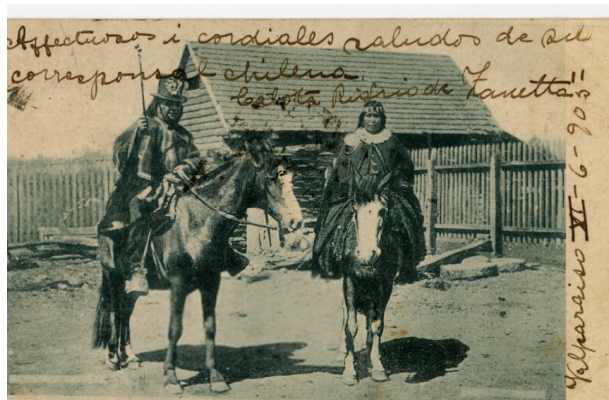 Affectuosos i cordiales saludos de su
corresponsal chilena.
de Zanetta
Valparaiso XI-6-903